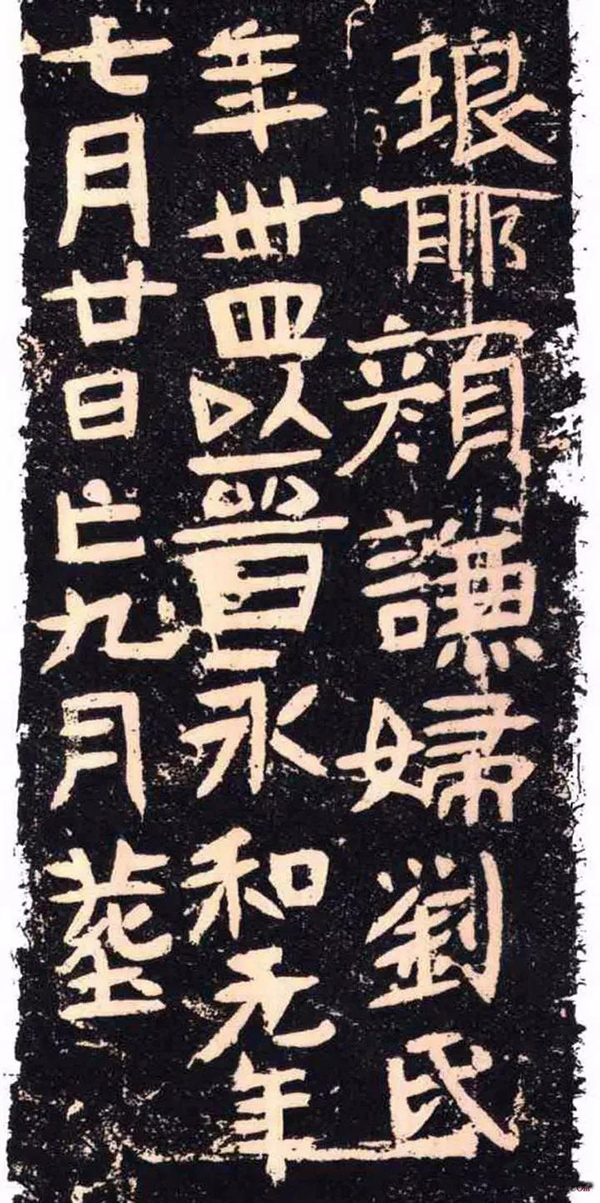 琅耶顏謙婦劉氏
年卅四以晉永和元年
七月廿日亡九月葬